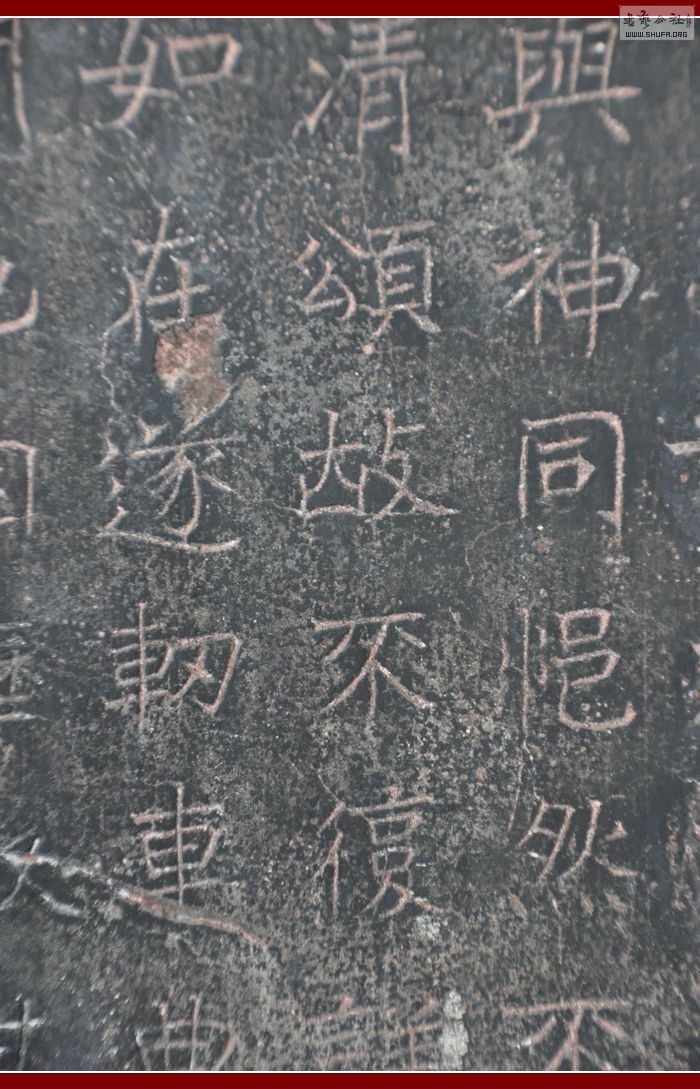 書藝公社
WWW.SHUFA.ORG
與神同悒然不
清頌故不復
如在遂軔車